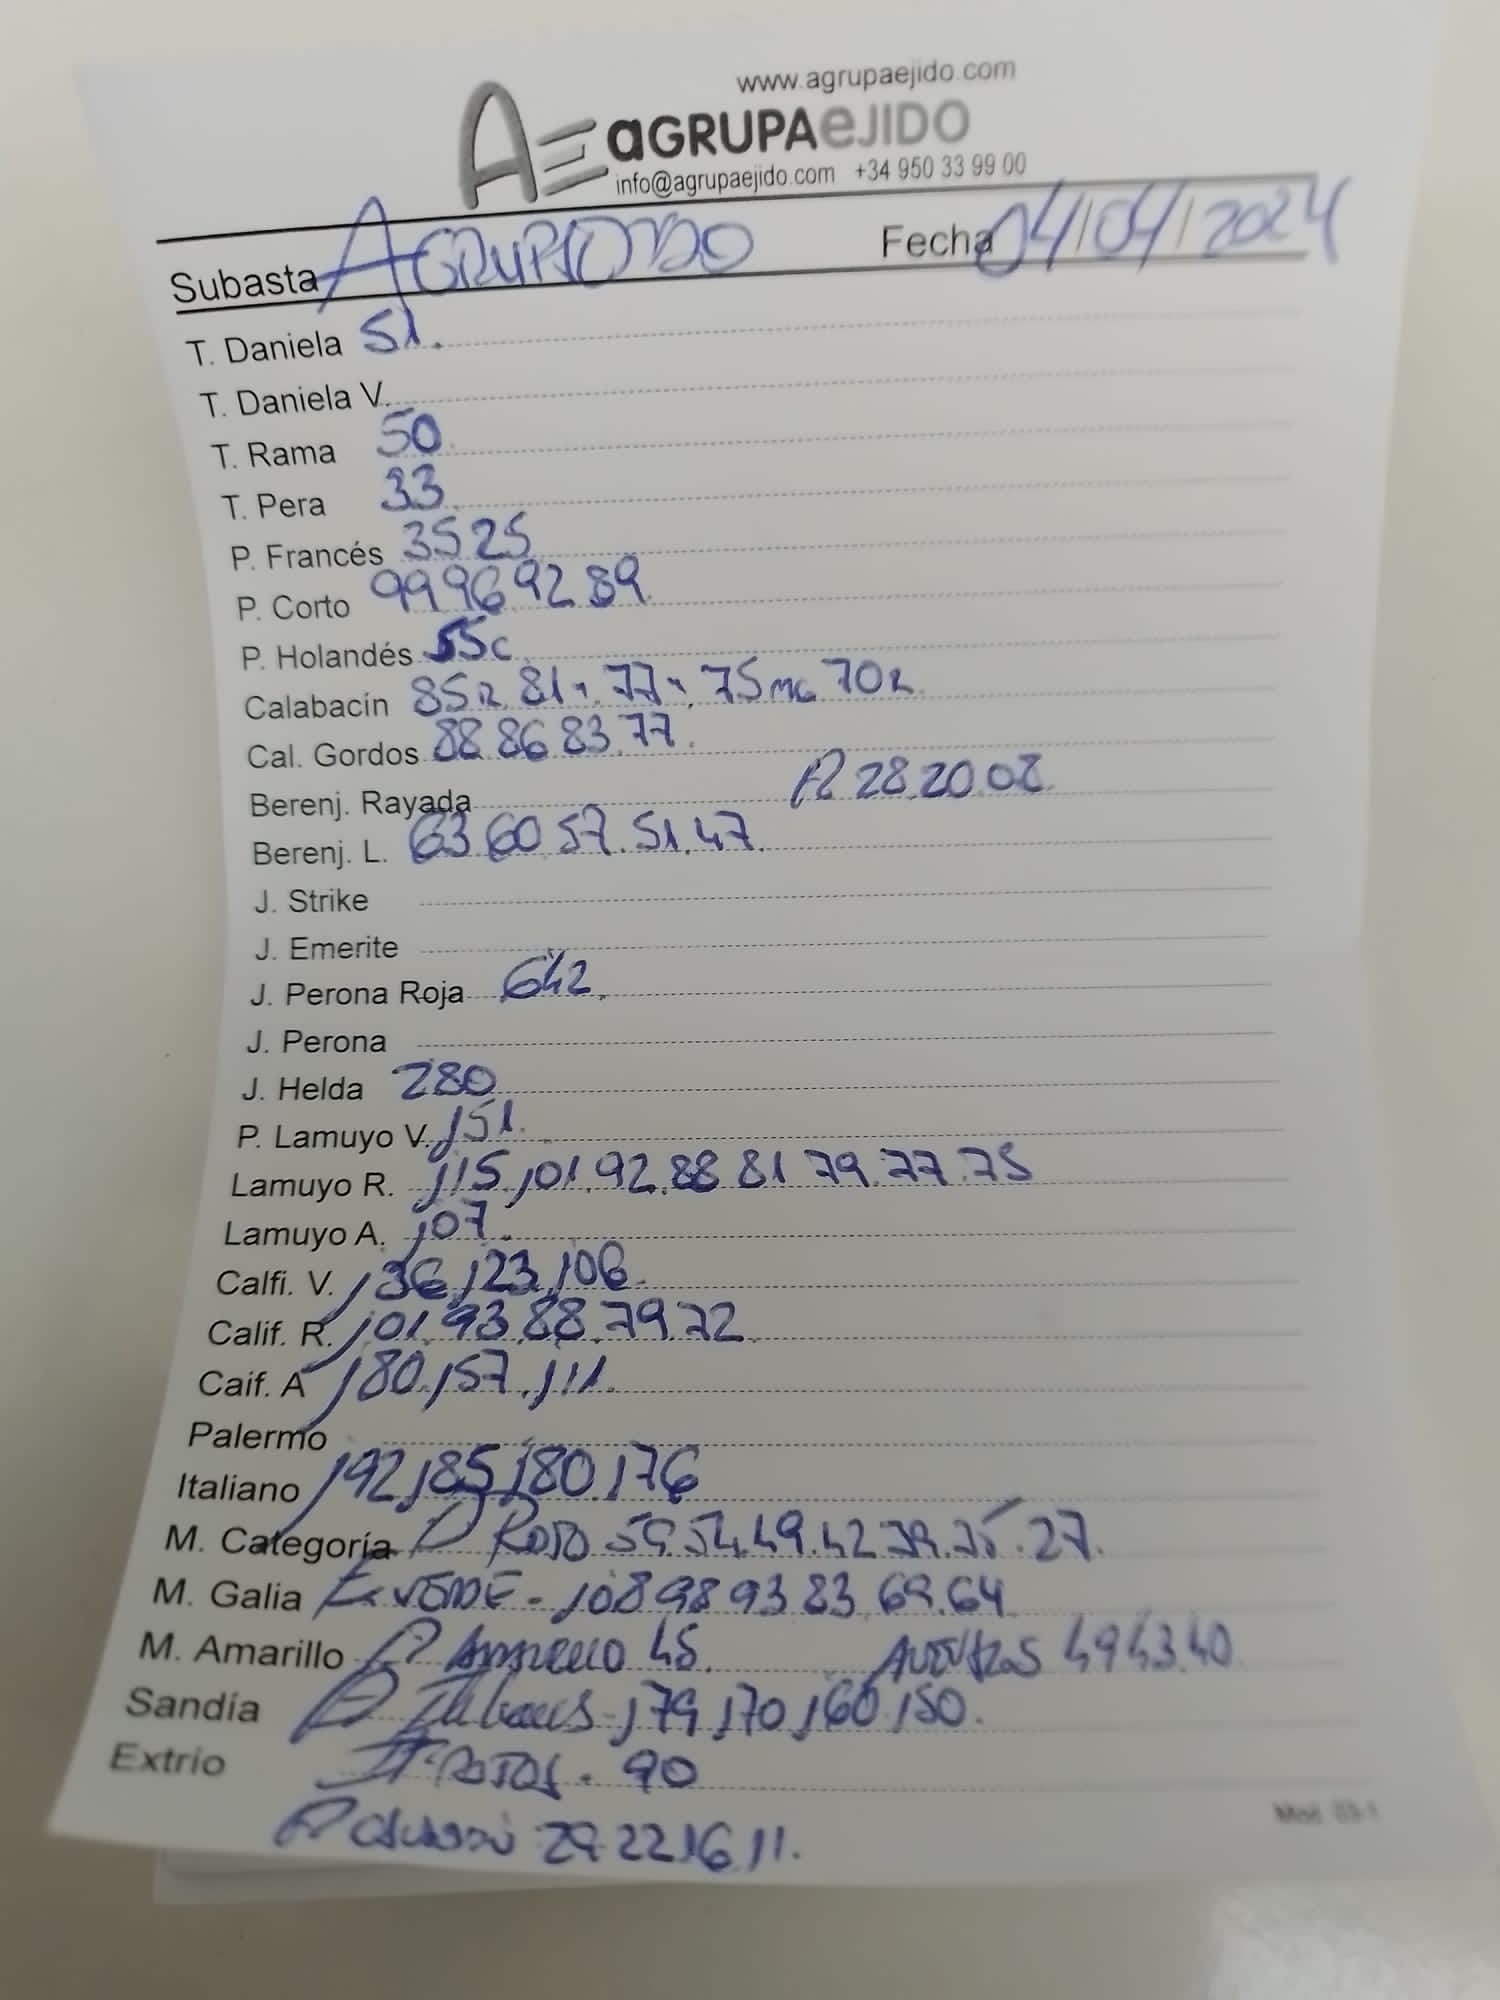 www.agrupaejido.com
AE aGRUPAeJIDO
info@agrupaejido.com +34 950 33 99 00
Subasta Fecha 04/04/2024
T. Daniela 51.
T. Daniela V.
T. Rama 50.
T. Pera 33
P. Francés 35 25
P. Corto 99 96 92 89.
P. Holandés 55c
Calabacín 85R. 81". 77". 75mc 70R.
Cal. Gordos 88 86 83.77.
Berenj. Rayada R 28.20.08.
Berenj. L. 63 60 57.51.47.
J. Strike
J. Emerite
J. Perona Roja 642.
J. Perona
J. Helda 280
P. Lamuyo V. 151.
Lamuyo R. 115.101.92.88 81 79.77.75
Lamuyo A. 107.
Calfi. V. 136,123,106.
Calif. R. 101.93.88.79.72.
Caif. A 180.157.111.
Palermo
Italiano 192,185,180.176
M. Categoría P Rojo 59.54.49.42
M. Galia VERDE - 108 98 93 83 69.64
M. Amarillo P Amarillo 45. 49 43.40
Sandía P Italianos - 179,170,160,150.
Extrio ROJOS. 90
R 22 16 11.
Mod. 03-1